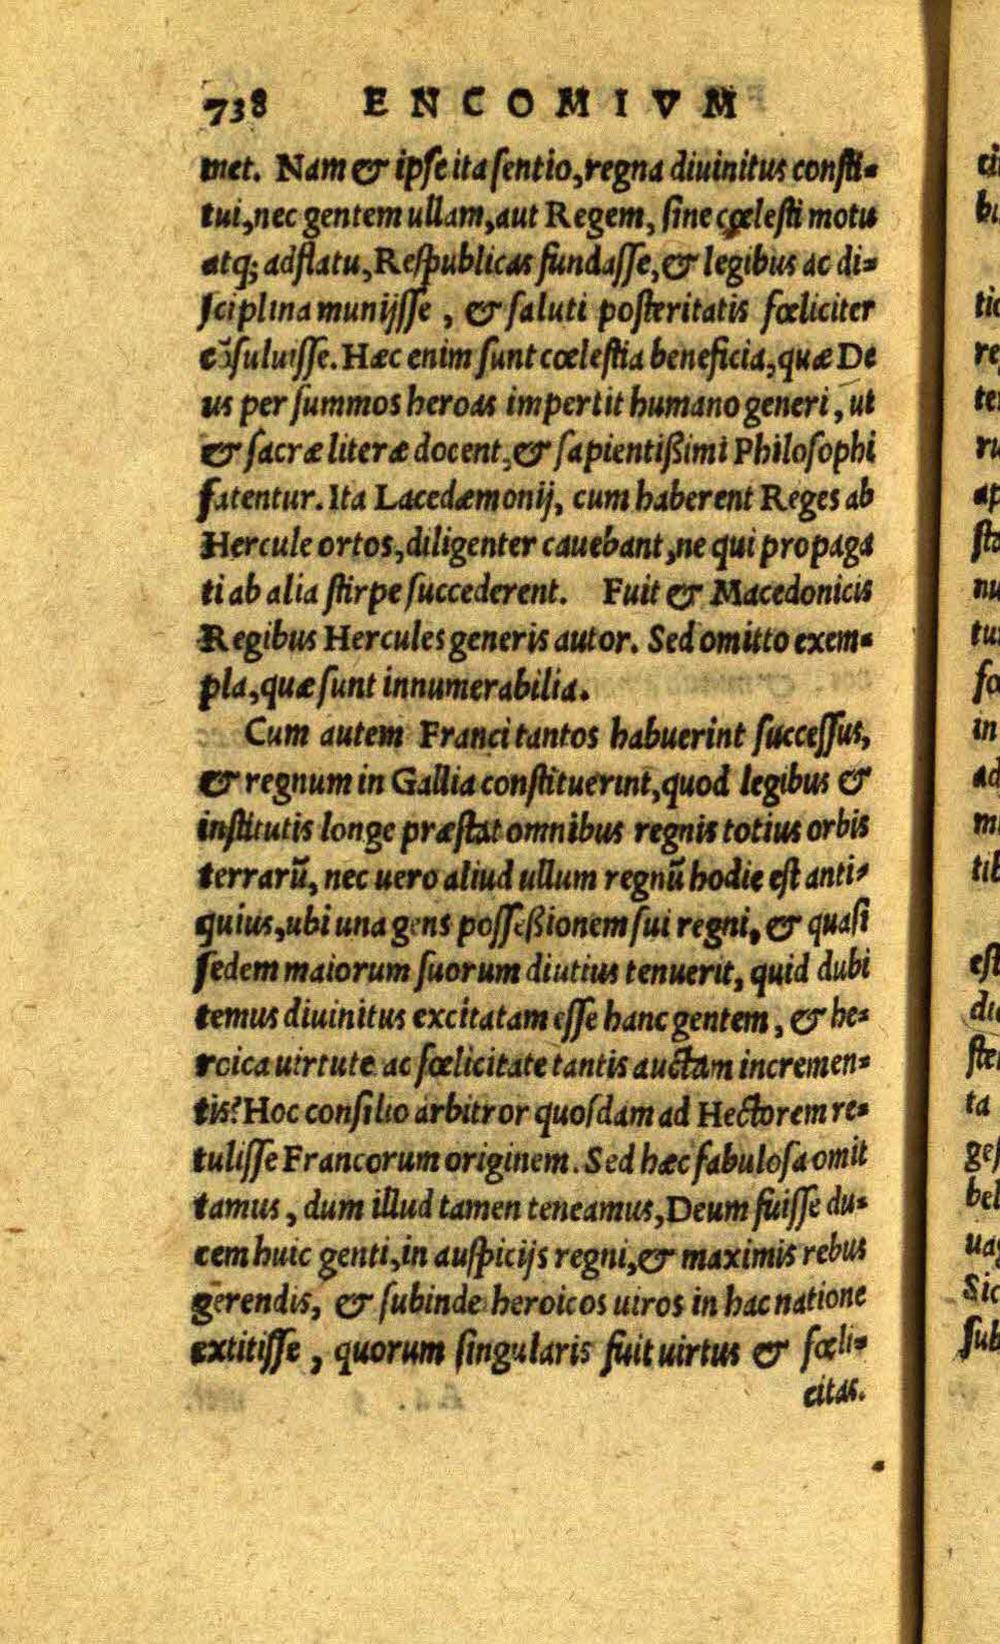 738 ENCOMIVM
met. Nam & ipſe ita ſentio, regna diuinitus conſti-
tui, nec gentem ullam, aut Regem, ſine cœleſti motu
atq; adflatu, Reſpublicas fundaſſe, & legibus ac di-
ſciplina munijſſe, & ſaluti poſteritatis fœliciter
cōſuluiſſe. Hæc enim ſunt cœleſtia beneficia, quæ De
us per ſummos heroas impertit humano generi, ut
& ſacræ literæ docent, & ſapientißimi Philoſophi
fatentur. Ita Lacedæmonij, cum haberent Reges ab
Hercule ortos, diligenter cauebant, ne qui propaga
ti ab alia ſtirpe ſuccederent. Fuit & Macedonicis
Regibus Hercules generis autor. Sed omitto exem-
pla, quæ ſunt innumerabilia.
Cum autem Franci tantos habuerint ſucceſſus,
& regnum in Gallia conſtituerint, quod legibus &
inſtitutis longe præſtat omnibus regnis totius orbis
terrarū, nec uero aliud ullum regnū hodie eſt anti-
quius, ubi una gens poſſeßionem ſui regni, & quaſi
ſedem maiorum ſuorum diutius tenuerit, quid dubi
temus diuinitus excitatam eſſe hanc gentem, & he-
roica uirtute ac fœlicitate tantis auctam incremen-
tis? Hoc conſilio arbitror quoſdam ad Hectorem re-
tuliſſe Francorum originem. Sed hæc fabuloſa omit
tamus, dum illud tamen teneamus, Deum fuiſſe du-
cem huic genti, in auſpicijs regni, & maximis rebus
gerendis, & ſubinde heroicos uiros in hac natione
extitiſſe, quorum ſingularis fuit uirtus & fœli-
citas.